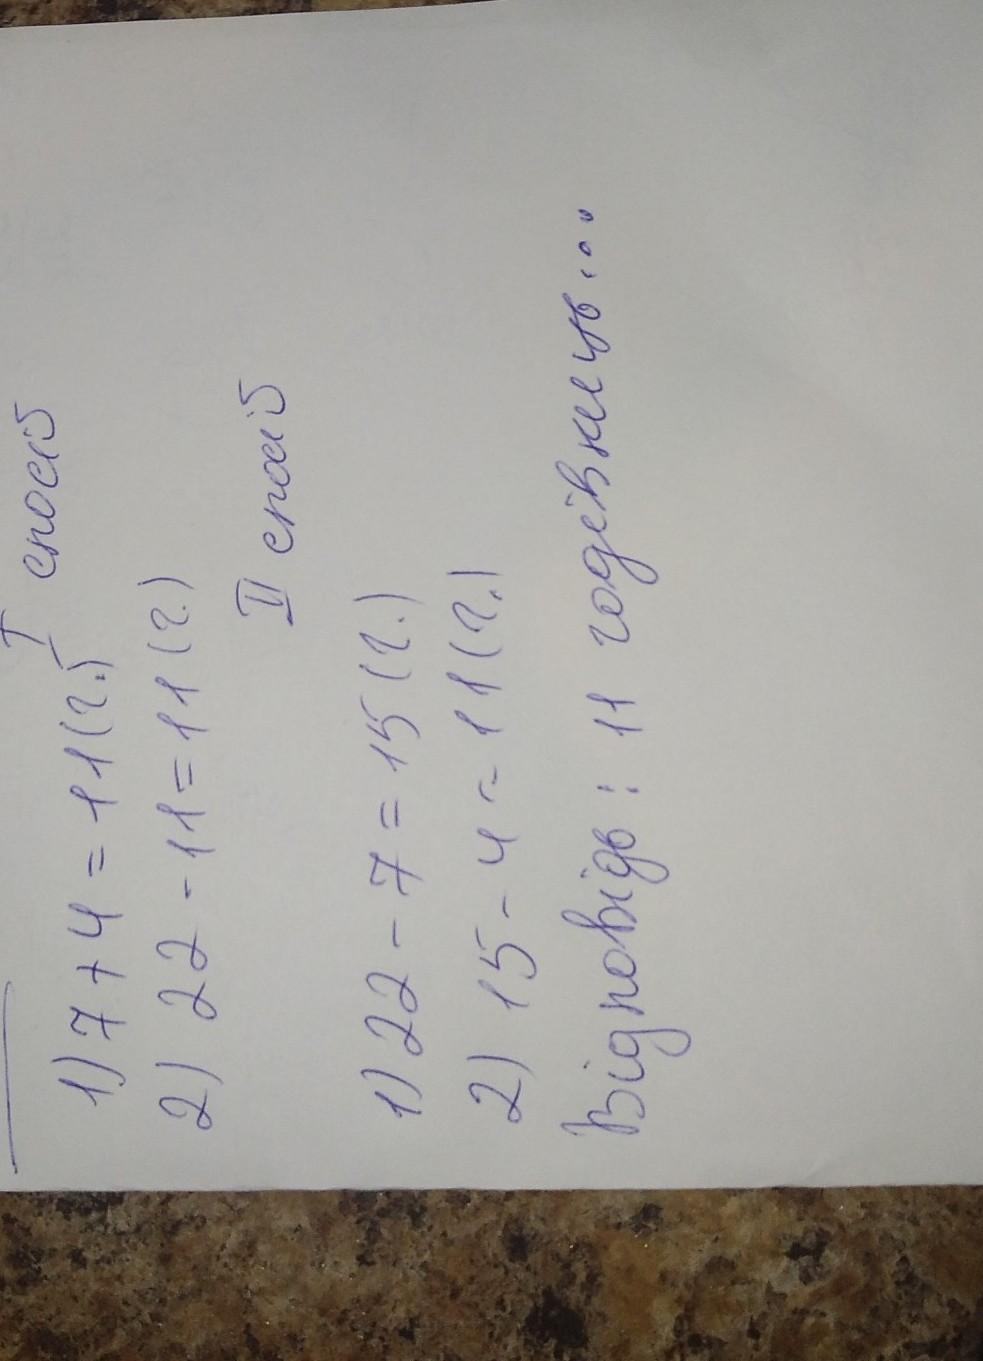 I спосіб
1) 7 + 4 = 11 (г.)
2) 22 - 11 = 11 (г.)
II спосіб
1) 22 - 7 = 15 (г.)
2) 15 - 4 = 11 (г.)
Відповідь: 11 годівниць...